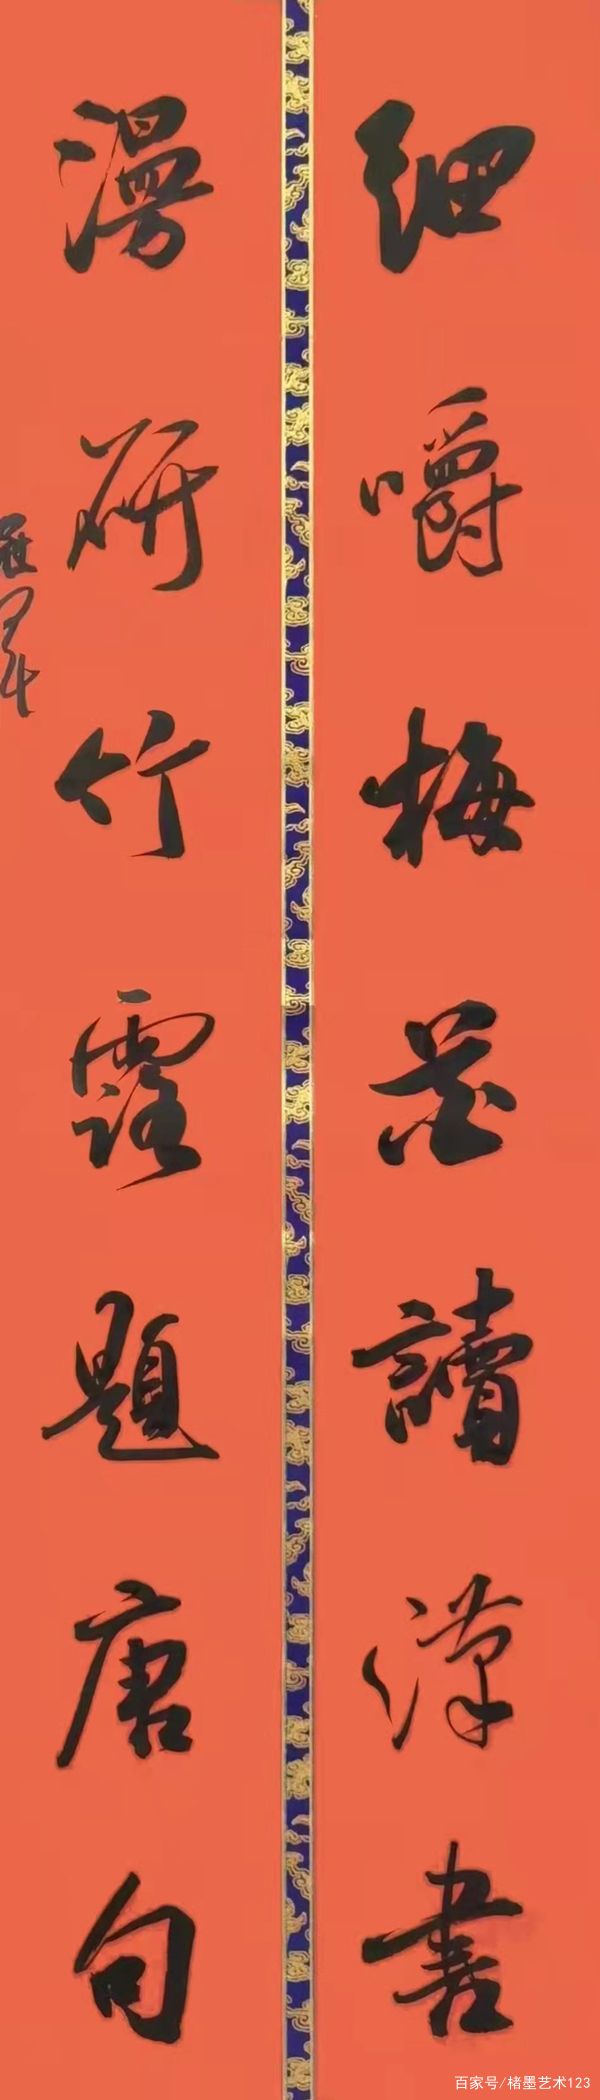 细嚼梅花讀漢書
漫研竹露題唐句
百家号/楮墨艺术123